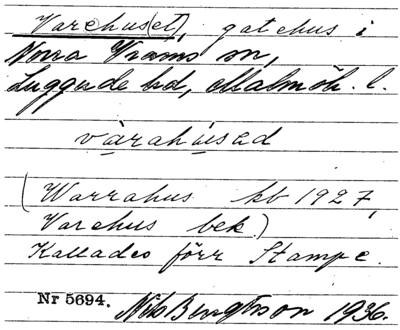 Varehus(et), gatehus i
Norra Vrams sn,
Luggude hd, Malmöh. l.
vàrahúsəd
(Warrahus kb 1927,
Varehus bek)
Kallades förr Stampe.
Nr 5694. Nils Bengtsson 1936.